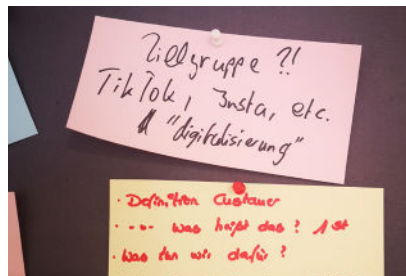 Zielgruppe ?!
TikTok, Insta, etc.
"digitalisierung"
· Definition Customer
· -"- was heißt das? 1st
· Was tun wir dafür?